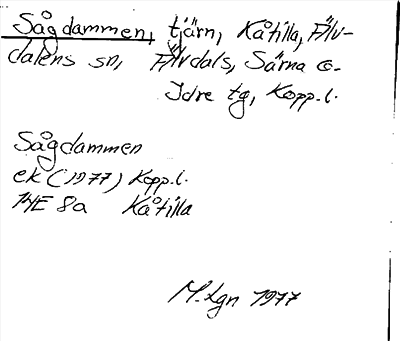 Sågdammen, tjärn, Kåtilla, Älv-
dalens sn, Älvdals, Särna o.
Idre tg, Kopp.l.
Sågdammen
ek (1977) Kopp.l.
14E 8a Kåtilla
M.Lgn 1977